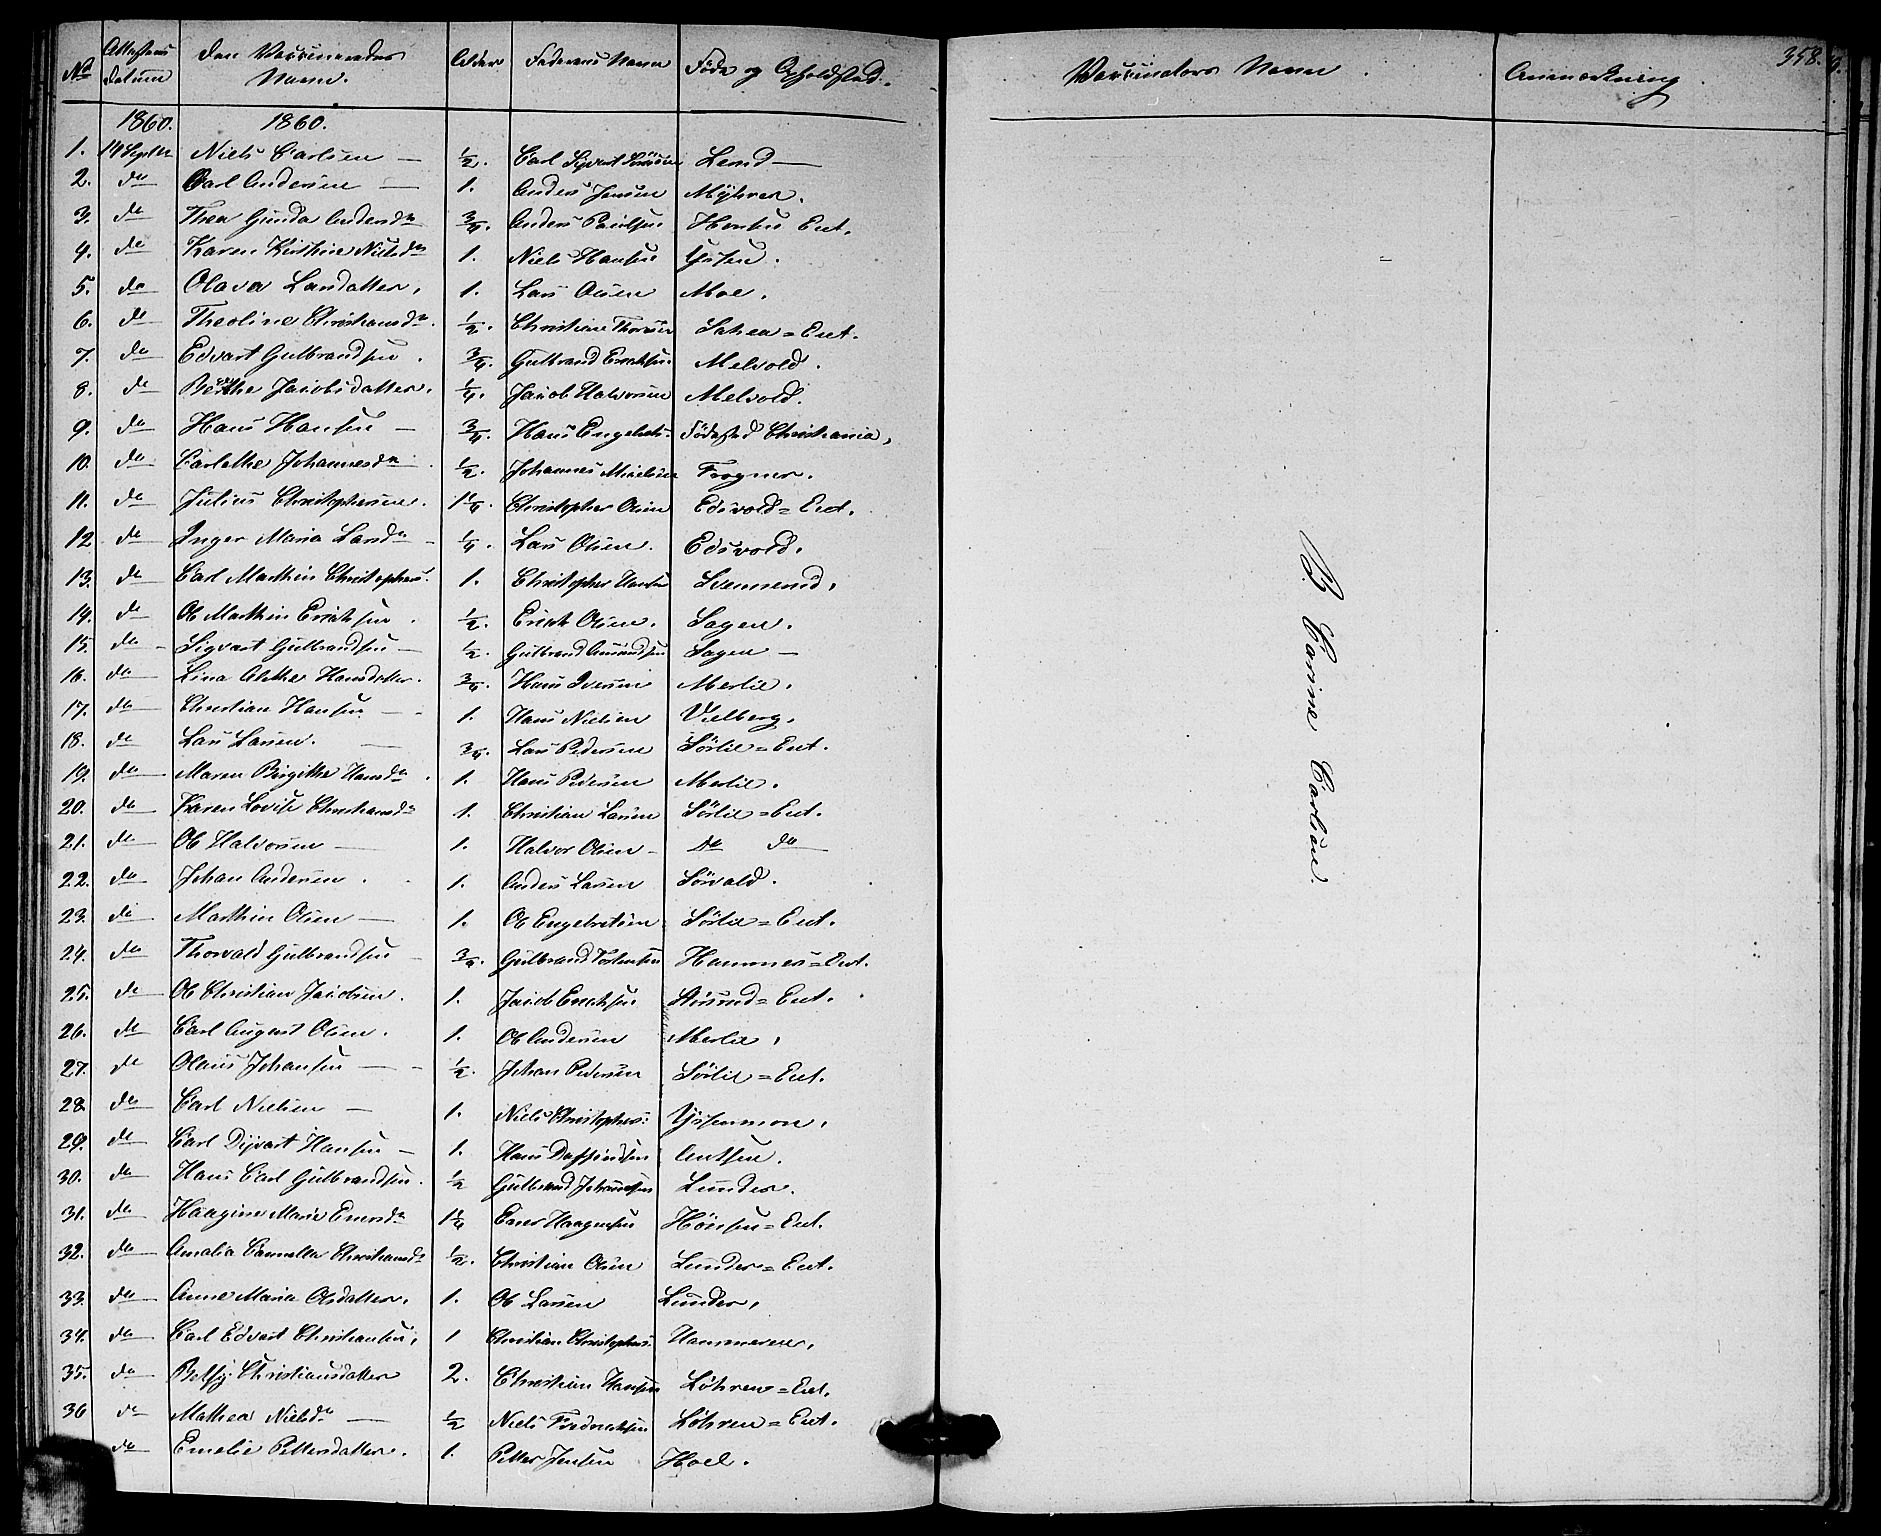 No Attestens Datum den Vaccineredes Navn. Alder Faderens Navn Føde og Opholdsted. Vaccinators Navn Anmærkning 358.
1860. 1860.
1. 14 Septbr Niels Carlsen — ½. Carl Sigvart Lend —
2. do Carl Andersen — 1. Anders Jensen Myhrer.
3. do Thea Gunda Andersdr ¾. Anders Paulsen Eiet.
4. do Karen Kirstine Nielsdr 1. Niels Hansen
5. do Olava Larsdatter, 1. Lars Olsen Moe.
6. do Theoline Christiansdr. ½. Christian Thoresen Eiet.
7. do Edvart Gulbrandsen. ¾. Gulbrand Erichsen Melvold.
8. do Berthe Jacobsdatter. ¼. Jacob Halvorsen Melvold.
9. do Hans Hansen — ¾. Hans Engebrets. Fødested Christiania,
10. do Carlethe Johannesdr ½. Johannes Mikelsen Frogner.
11. do Julius Christophersen. 1¼. Christopher Olsen Edsvold=Eiet.
12 do Inger Maria Larsdr — ¼. Lars Olsen. Edsvold.
13. do Carl Marthin Christophers. 1. Christopher Hansen
14. do Ole Marthin Erichsen. ½. Erich Olsen. Sagen.
15. do Sigvart Gulbrandsen — ½. Gulbrand Amundsen Sagen —
16. do Lina Alethe Hansdatter. ¾. Hans Iversen Merlie.
17. do Christian Hansen — 1. Hans Nielsen Vielberg.
18. do Lars Larsen. — ¾. Lars Pedersen Sørlie=Eiet.
19. do Maren Birgithe Hansdr. 1. Hans Pedersen Merlie.
20. do Karen Lovise Christiansdr 1. Christian Larsen Sørlie=Eiet.
21. do Ole Halvorsen — 1. Halvor Olsen — do do
22. do Johan Andersen. 1. Anders Larsen
23. do Marthin Olsen — 1. Ole Engebretsen Sørlie=Eiet.
24. do Thorvald Gulbrandsen — ¾. Gulbrand Torstensen Hammer=Eiet.
25. do Ole Christian Jacobsen. 1. Jacob Erichsen Eiet.
26. do Carl August Olsen. 1. Ole Andersen Merlie,
27. do Olaus Johansen — ½. Johan Pedersen Sørlie=Eiet.
28. do Carl Nielsen — 1. Niels Christophers.
29. do Carl Hansen — 1. Hans Dagfindsen
30. do Hans Carl Gulbrandsen. ½ Gulbrand Johannesen Lunder.
31. do Haagine Marie Enersdr 1¼ Ener Haagensen Eiet.
32. do Amalia Camilla Christiansdr ½. Christian Olsen Lunder=Eiet.
33. do Anne Maria Olsdatter. 1. Ole Larsen Lunder,
34. do Carl Edvart Christiansen, 1 Christian Christophers. Hammeren,
35. do Betsy Christiansdatter 2. Christian Hansen Løhren=Eiet.
36 do Mathea Nielsdr — ½ Niels Fredrichsen Løhren=Eiet.
do Emelie Pettersdatter. 1. Petter Jensen Hoel.
B. Carine Carlsen.